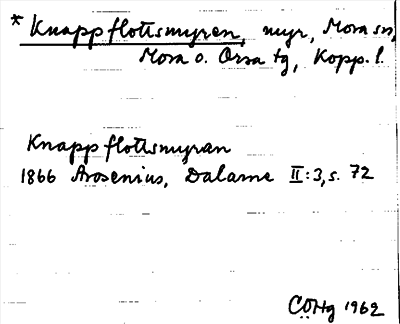 * Knappflottsmyren, myr, Mora sn,
Mora o. Orsa tg, Kopp. l.
Knappflottsmyran
1866 Arosenius, Dalarne II:3, s. 72
CÖHg 1962